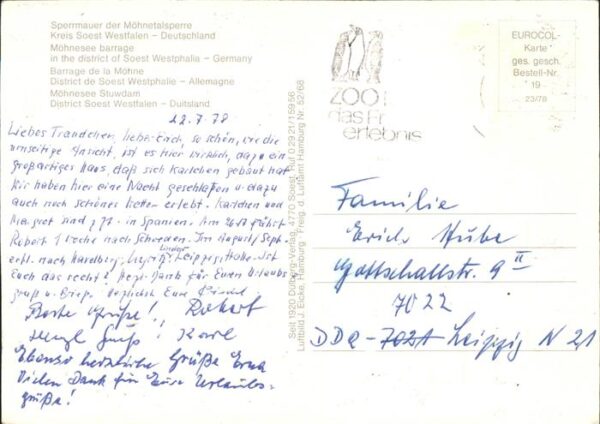 Sperrmauer der Möhnetalsperre
Kreis Soest Westfalen – Deutschland
Möhnesee barrage
in the district of Soest Westphalia – Germany
Barrage de la Möhne
District de Soest Westphalie – Allemagne
Möhnesee Stuwdam
District Soest Westfalen – Duitsland
22.7.78
Liebes Traudchen, lieber Erich, so schön, wie die
umseitige Ansicht, ist es hier wirklich, dazu ein
großartiges Haus, daß sich Karlchen gebaut hat
Wir haben hier eine Nacht geschlafen u. dazu
auch noch schönes Wetter erlebt. Karlchen und
Margret sind z. Zt. in Spanien. Am 26.7. fährt
Robert 1 Woche nach Schweden. Im August/Sept.
evtl. nach Hardbg. Leipzig/Halle. Ist
Euch das recht? Herzl. Dank für Euren Urlaubs
gruß u. Brief. Herzlichst Eure
Beste Grüße! Robert
Herzl. Gruß! Karl
Ebenso herzliche Grüße Erna
Vielen Dank für Eure Urlaubs-
grüße!
Seit 1920 Dülberg-Verlag, 4770 Soest, Ruf 02921/15956
Luftbild J. Eicke, Hamburg · Freig. d. Luftamt Hamburg Nr. 52/68
ZOO
das
erlebnis
EUROCOL-
Karte
ges. gesch.
Bestell-Nr.
19
23/78
Familie
Erich Hube
Gottschallstr. 9 II
7022
DDR - 7021 Leipzig N 21